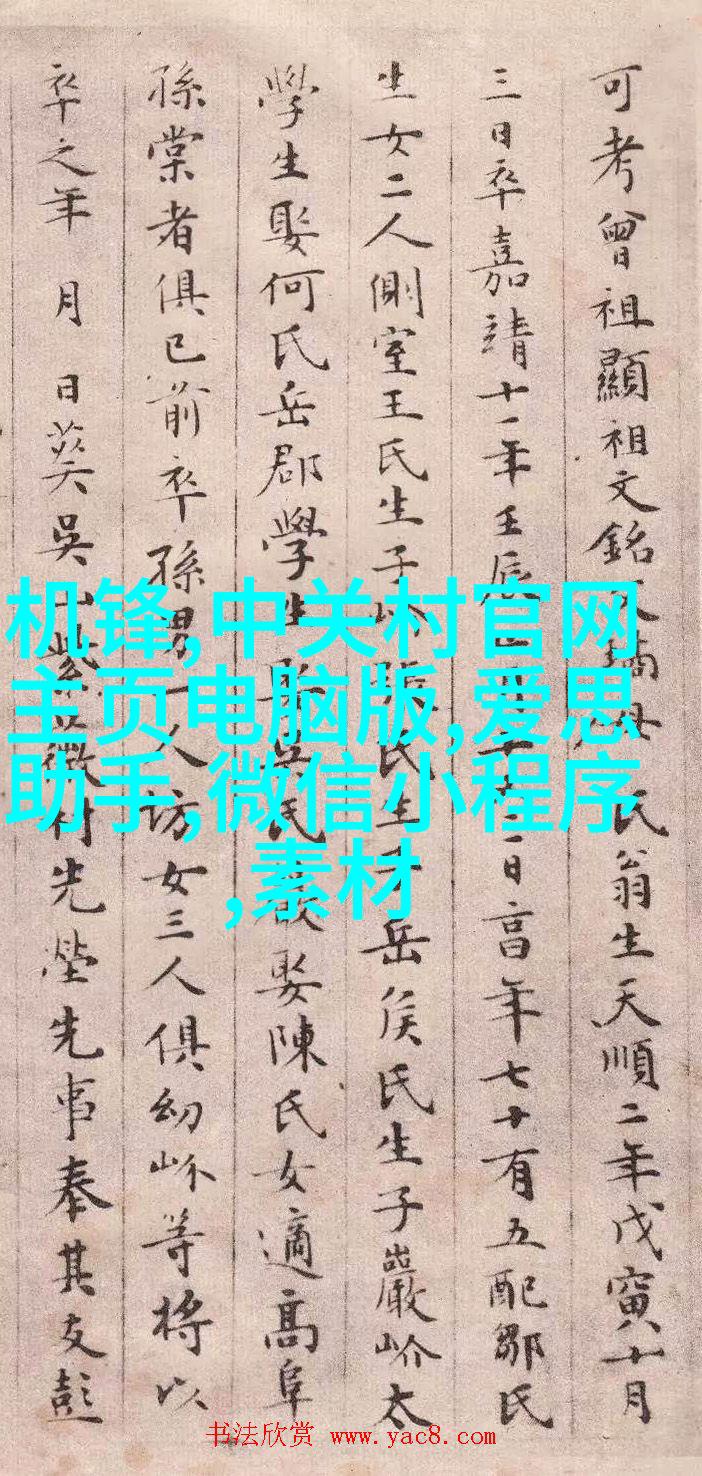 可考曾祖顯祖文銘父 母 氏翁生天順二年戊寅十月
三日卒嘉靖十一年壬辰 日高年七十有五配鄒氏
生女二人側室王氏生子岎張氏生子岳侯氏生子巖岎太
學生娶何氏岳郡學生娶吳氏 娶陳氏女適高阜
孫棠者俱已前卒孫男一人坊女三人俱幼岎等將以
卒之年 月 日葬吳山紫薇村先塋先事奉其友彭
机锋,中关村官网
主页电脑版,爱思
助手,微信小程序
,素材
书法欣赏 www.yac8.com